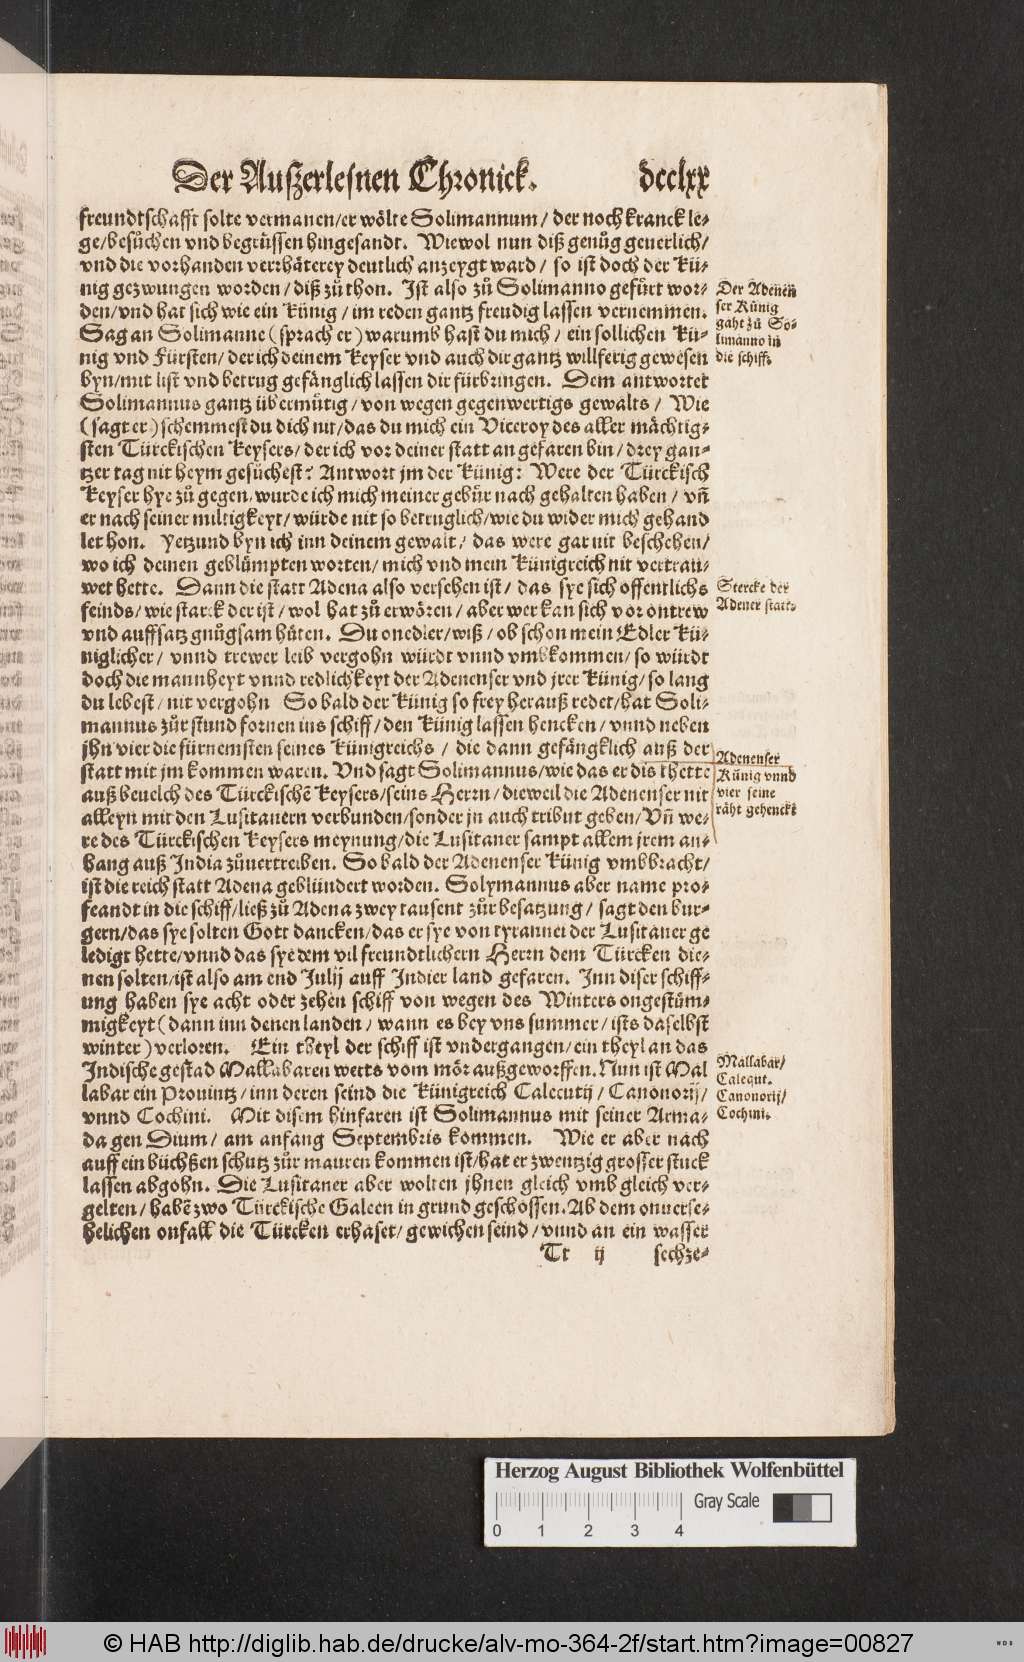 Der Außerlesnen Chronick. dcclxx
freundtschafft solte vermanen/er wölte Solimannum/ der noch kranck le-
ge/besůchen vnd begrüssen hingesandt. Wiewol nun diß genůg geuerlich/
vnd die vorhanden verrhäterey deutlich anzeygt ward/ so ist doch der Kü-
nig gezwungen worden/ diß zů thon. Ist also zů Solimanno gefürt wor-
den/vnd hat sich wie ein Künig/ im reden gantz freudig lassen vernemmen.
Sag an Solimanne (sprach er) warumb hast du mich/ ein sollichen Kü-
nig vnd Fürsten/ der ich deinem Keyser vnd auch dir gantz willferig gewesen
byn/mit list vnd betrug gefänglich lassen dir fürbringen. Dem antwortet
Solimannus gantz übermůtig/ von wegen gegenwertigs gewalts/ Wie
(sagt er) schemmest du dich nit/das du mich ein Viceroy des aller mächtig-
sten Türckischen Keysers/ der ich vor deiner statt an gefaren bin/ drey gan-
tzer tag nit heym gesůchest? Antwort jm der Künig: Were der Türckisch
Keyser hye zů gegen/wurde ich mich meiner gebür nach gehalten haben/ vñ
er nach seiner miltigkeyt/ würde nit so betruglich/wie du wider mich gehand
let hon. Yetzund byn ich inn deinem gewalt/ das were gar nit beschehen/
wo ich deinen geblümpten worten/ mich vnd mein Künigreich nit vertrau-
wet hette. Dann die statt Adena also versehen ist/ das sye sich offentlichs
feinds/ wie starck der ist/ wol hat zů erwören/ aber wer kan sich vor ontrew
vnd auffsatz gnůgsam hüten. Du onedler/wiß/ ob schon mein Edler Kü-
niglicher/ vnnd trewer leib vergohn würdt vnnd vmbkommen/ so würdt
doch die mannheyt vnnd redlichkeyt der Adenenser vnd jrer Künig/ so lang
du lebest/ nit vergohn So bald der Künig so frey herauß redet/hat Soli-
mannus zůr stund fornen ins schiff/ den Künig lassen hencken/ vnnd neben
jhn vier die fürnemsten seines Künigreichs/ die dann gefängklich auß der
statt mit jm kommen waren. Vnd sagt Solimannus/wie das er dis thette
auß beuelch des Türckischẽ Keysers/seins Herrn/dieweil die Adenenser nit
alleyn mit den Lusitanern verbunden/sonder jn auch tribut geben/ Vñ we-
re des Türckischen Keysers meynung/die Lusitaner sampt allem jrem an-
hang auß India zůuertreiben. So bald der Adenenser Künig vmbbracht/
ist die reich statt Adena geblündert worden. Solymannus aber name pro-
feandt in die schiff/ließ zů Adena zwey tausent zůr besatzung/ sagt den bur-
gern/das sye solten Gott dancken/das er sye von tyrannei der Lusitaner ge
ledigt hette/vnnd das sye dem vil freundtlichern Herrn dem Türcken die-
nen solten/ist also am end Julij auff Indier land gefaren. Inn diser schiff-
ung haben sye acht oder zehen schiff von wegen des Winters ongestüm-
migkeyt (dann inn denen landen/ wann es bey vns summer/ ists daselbst
winter) verloren. Ein theyl der schiff ist vndergangen/ein theyl an das
Indische gestad Mallabaren werts vom mör außgeworffen. Nun ist Mal
labar ein Prouintz/ inn deren seind die Künigreich Calecutij/ Canonorij/
vnnd Cochini. Mit disem hinfaren ist Solimannus mit seiner Arma-
da gen Dium/ am anfang Septembris kommen. Wie er aber nach
auff ein büchßen schutz zůr mauren kommen ist/hat er zwentzig grosser stuck
lassen abgohn. Die Lusitaner aber wolten jhnen gleich vmb gleich ver-
gelten/ habẽ zwo Türckische Galeen in grund geschossen. Ab dem onuerse-
helichen onfall die Türcken erhaset/ gewichen seind/ vnnd an ein wasser
Tt ij sechze-
Der Adenen
ser Künig
gaht zů So-
limanno in
die schiff.
Stercke der
Adener statt.
Adenenser
Künig vnnd
vier seine
räht gehenckt
Mallabar/
Calequt.
Canonorij/
Cochini.
Herzog August Bibliothek Wolfenbüttel
Gray Scale
0 1 2 3 4
© HAB http://diglib.hab.de/drucke/alv-mo-364-2f/start.htm?image=00827